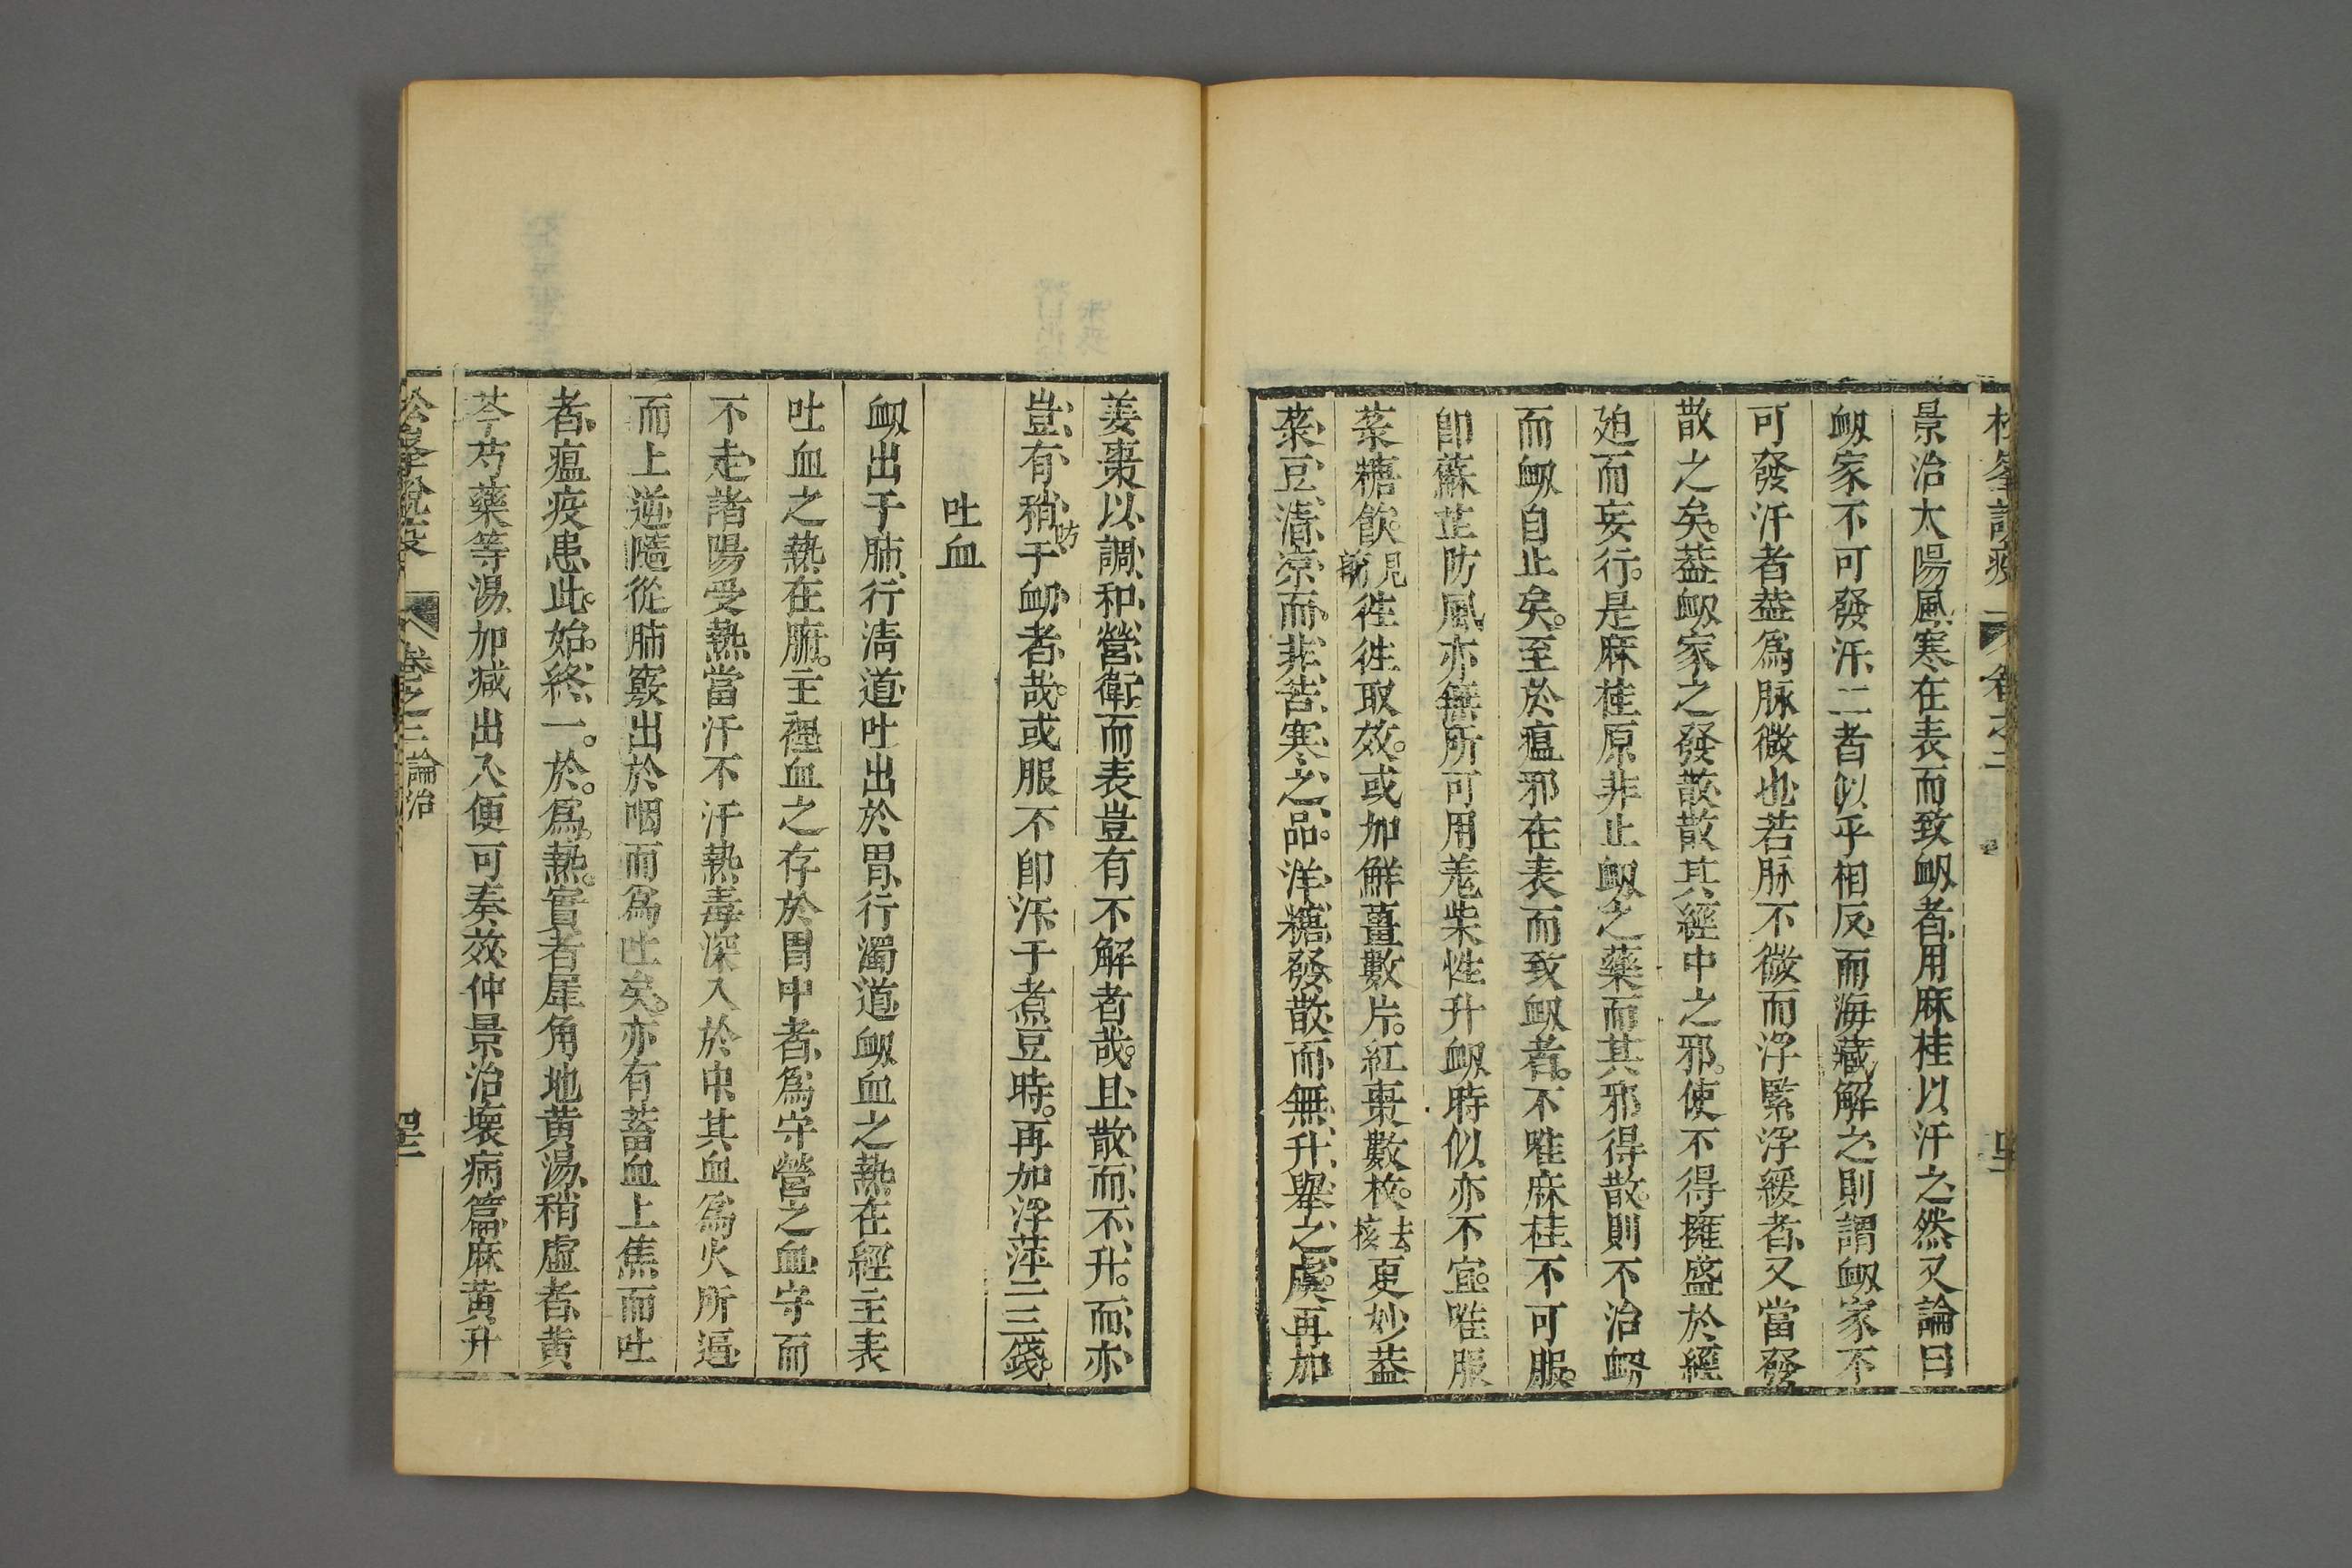 松峯說疫 卷之三
景治太陽風寒在表而致衂者用麻桂以汗之然又論曰
衂家不可發汗二者似乎相反而海藏解之則謂衂家不
可發汗者葢爲脉微也若脉不微而浮緊浮緩者又當發
散之矣葢衂家之發散散其經中之邪使不得擁盛於經
廹而妄行是麻桂原非止衂之藥而其邪得散則不治衂
而衂自止矣至於瘟邪在表而致衂者不唯麻桂不可服
卽蘇芷防風亦無所可用羗柴性升衂時似亦不宜唯服
菉糖飮見前徃徃取效或加鮮薑數片紅棗數枚去核更妙葢
菉豆清凉而非苦寒之品洋糖發散而無升舉之虞再加
姜棗以調和營衛而表豈有不解者哉且散而不升而亦
豈有稍妨于衂者哉或服不卽汗于煮豆時再加浮萍二三錢
吐血
衂出于肺行淸道吐出於胃行濁道衂血之熱在經主表
吐血之熱在腑主裡血之存於胃中者爲守營之血守而
不走諸陽受熱當汗不汗熱毒深入於中其血爲火所逼
而上逆隨從肺竅出於咽而爲吐矣亦有蓄血上焦而吐
者瘟疫患此始終一於爲熱實者犀角地黄湯稍虛者黄
芩芍藥等湯加减出入便可奏效仲景治壞病篇麻黄升
松峯說疫 卷之三 論治